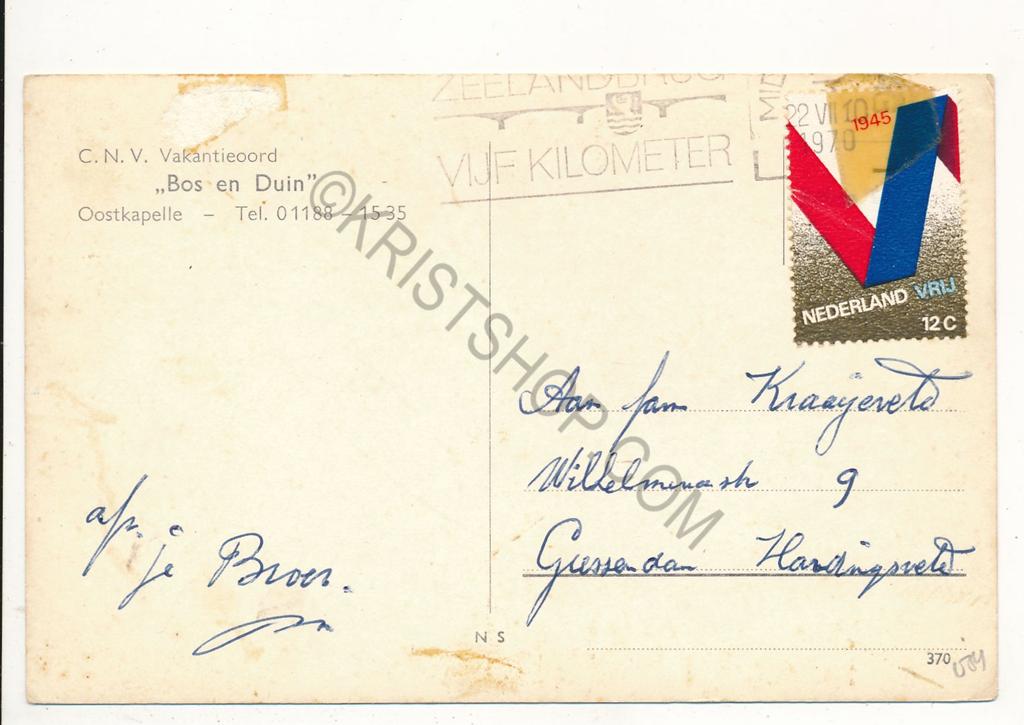 ZEELANDBRUG
VIJF KILOMETER
22 VII 10
1970
1945
NEDERLAND VRIJ
12 C
C. N. V. Vakantieoord
„Bos en Duin”
Oostkapelle – Tel. 01188 – 1535
©KRISTSHOP.COM
Aan fam Kraaijeveld
Wilhelminastr 9
Giessendam Hardingsveld
afz. je Broer.
N S
370